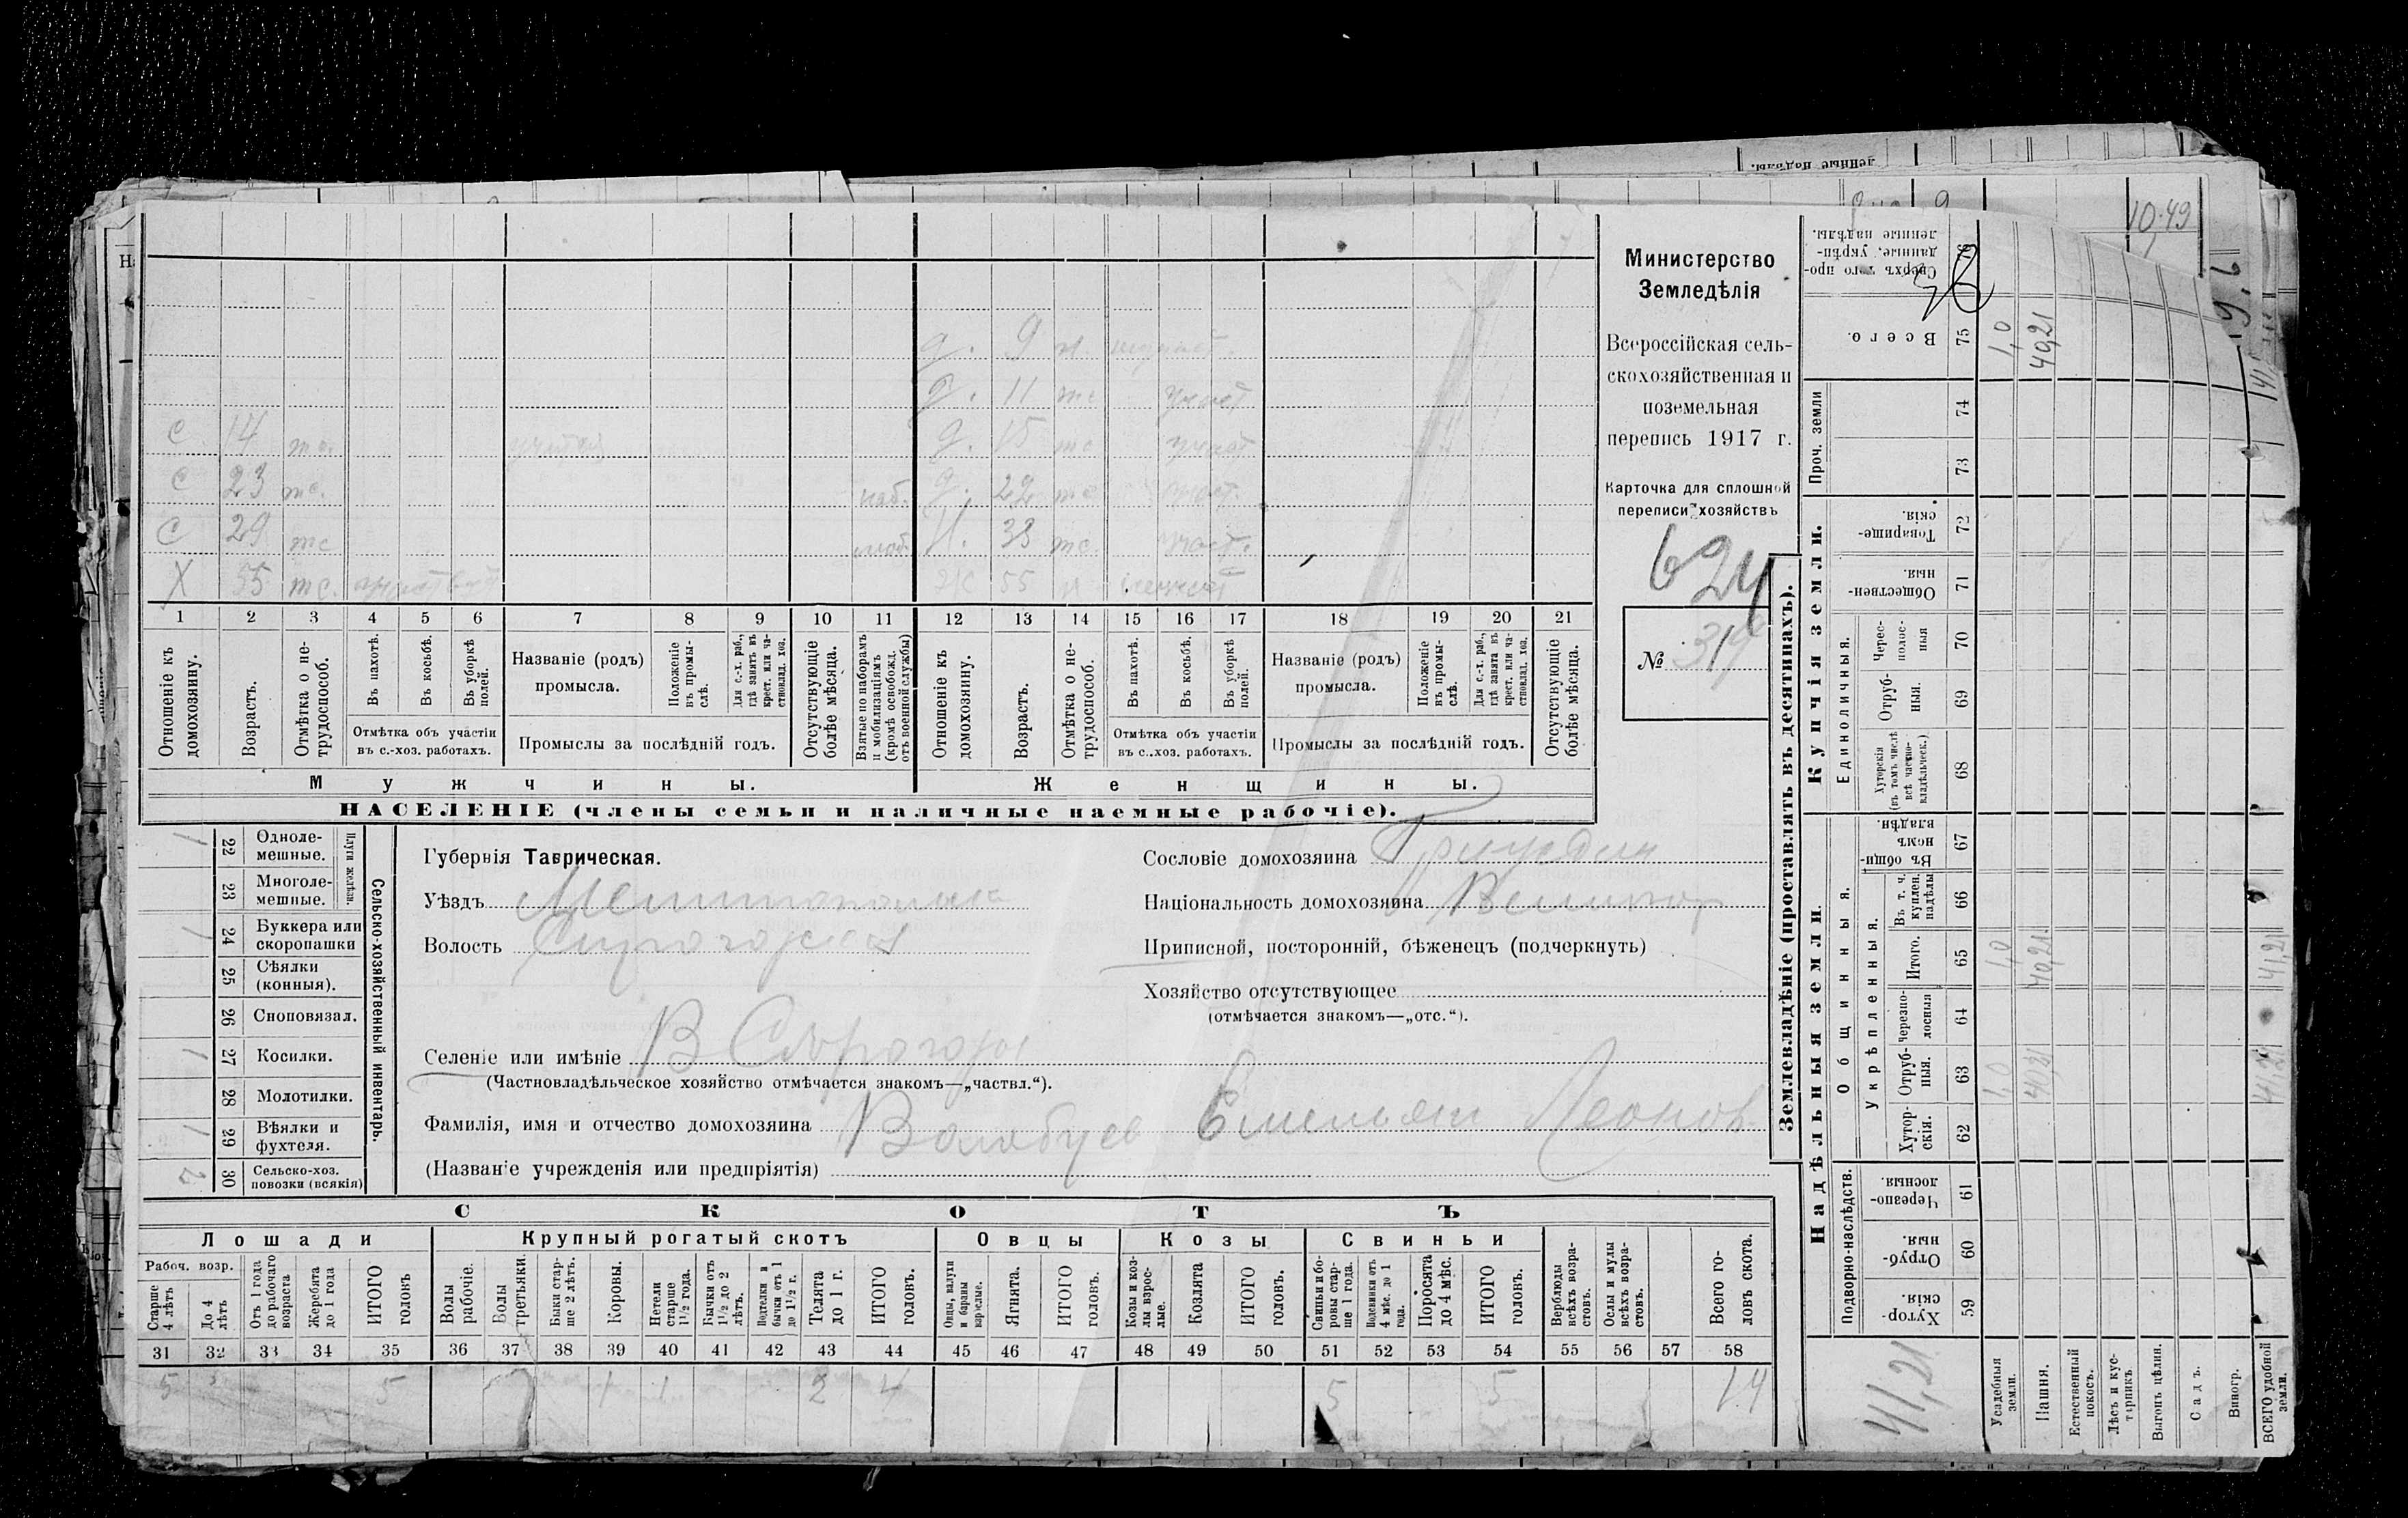 денные надѣлы.
10.49
19,6
Министерство
Земледѣлія
Всероссійская сель-
скохозяйственная и
поземельная
перепись 1917 г.
Карточка для сплошной
переписи хозяйствъ
624
№ 319
д. 9 н
д. 11 тс участ
С 14 тс. учится д. 15 тс участ
С 23 тс. моб. д. 22 тс участ.
С 29 тс моб. Н. 38 тс. участ.
Х 55 тс. участвует Ж 55 н
1 2 3 4 5 6 7 8 9 10 11 12 13 14 15 16 17 18 19 20 21
Отношеніе къ домохозяину.
Возрастъ.
Отмѣтка о не-трудоспособ.
Въ пахотѣ.
Въ косьбѣ.
Въ уборкѣ полей.
Отмѣтка объ участіи
въ с.-хоз. работахъ.
Названіе (родъ)
промысла.
Положеніе въ промы-слѣ.
Для с.-х. раб., гдѣ занятъ въ крест. или ча-стновлад. хоз.
Промыслы за послѣдній годъ.
Отсутствующіе болѣе мѣсяца.
Взятые по наборамъ и мобилизаціямъ (кромѣ освобожд. отъ военной службы)
Отношеніе къ домохозяину.
Возрастъ.
Отмѣтка о не-трудоспособ.
Въ пахотѣ.
Въ косьбѣ.
Въ уборкѣ полей.
Отмѣтка объ участіи
въ с.-хоз. работахъ.
Названіе (родъ)
промысла.
Положеніе въ промы-слѣ.
Для с.-х. раб., гдѣ занята въ крест. или ча-стновлад. хоз.
Промыслы за послѣдній годъ.
Отсутствующіе болѣе мѣсяца.
Мужчины.
Женщины.
НАСЕЛЕНІЕ (члены семьи и наличные наемные рабочіе).
1 22 Одноле-мешные.
23 Многоле-мешные.
Плуги желѣзн.
1 24 Буккера или скоропашки
25 Сѣялки (конныя).
26 Сноповязал.
1 27 Косилки.
28 Молотилки.
1 29 Вѣялки и фухтеля.
2 30 Сельско-хоз. повозки (всякія)
Сельско-хозяйственный инвентарь.
Губернія Таврическая.
Уѣздъ Мелитопольск
Волость Сирогозская
Селеніе или имѣніе В Сѣрогозы
(Частновладѣльческое хозяйство отмѣчается знакомъ—„частвл.“).
Фамилія, имя и отчество домохозяина Волобуев Емельян Леонов.
(Названіе учрежденія или предпріятія)
Сословіе домохозяина
Національность домохозяина Великор
Приписной, посторонній, бѣженецъ (подчеркнуть)
Хозяйство отсутствующее
(отмѣчается знакомъ—„отс.“).
СКОТЪ
Лошади
Крупный рогатый скотъ
Овцы
Козы
Свиньи
Рабоч. возр.
Старше 4 лѣтъ
До 4 лѣтъ
Отъ 1 года до рабочаго возраста
Жеребята до 1 года
ИТОГО головъ
Волы рабочіе.
Волы третьяки.
Быки стар-ше 2 лѣтъ.
Коровы.
Нетели старше 1½ года.
Бычки отъ 1½ до 2 лѣтъ.
Подтелки и бычки отъ 1 до 1½ г.
Телята до 1 г.
ИТОГО головъ.
Овцы, валухи и бараны взрослые.
Ягнята.
ИТОГО головъ.
Козы и коз-лы взрос-лые.
Козлята
ИТОГО головъ.
Свиньи и бо-ровы стар-ше 1 года.
Подсвинки отъ 4 мѣс. до 1 года.
Поросята до 4 мѣс.
ИТОГО головъ.
Верблюды всѣхъ возра-стовъ.
Ослы и мулы всѣхъ возра-стовъ.
Всего го-ловъ скота.
31 32 33 34 35 36 37 38 39 40 41 42 43 44 45 46 47 48 49 50 51 52 53 54 55 56 57 58
5 5 1 1 2 4 5 5 14
Землевладѣніе (проставлять въ десятинахъ).
Купчія земли.
Надѣльныя земли.
Сверхъ того про-данные, укрѣп-ленные надѣлы. 76
Всего. 75 1,0 40,21
Проч. земли 74 73
Товарище-скія. 72
Обществен-ныя. 71
Единоличныя.
Черес-полос-ныя 70
Отруб-ныя. 69
Хуторскія (въ томъ числѣ всѣ частно-владѣльческ.) 68
Общинныя.
Въ общи-номъ владѣн. 67
Укрѣпленныя.
Въ т. ч. куплен. надѣлы 66
Итого. 65 1,0 40,21 41,21
Черезпо-лосныя 64
Отруб-ныя. 63 1,0 40,21 41,21
Хутор-скія. 62
Подворно-наслѣдств.
Черезпо-лосныя. 61
Отруб-ныя. 60
Хутор-скія. 59
41,21
Усадебныя земли.
Пашня.
Естественный покосъ.
Лѣсъ и кус-тарникъ.
Выгонъ цѣлин.
Садъ.
Виногр.
ВСЕГО удобной земли.